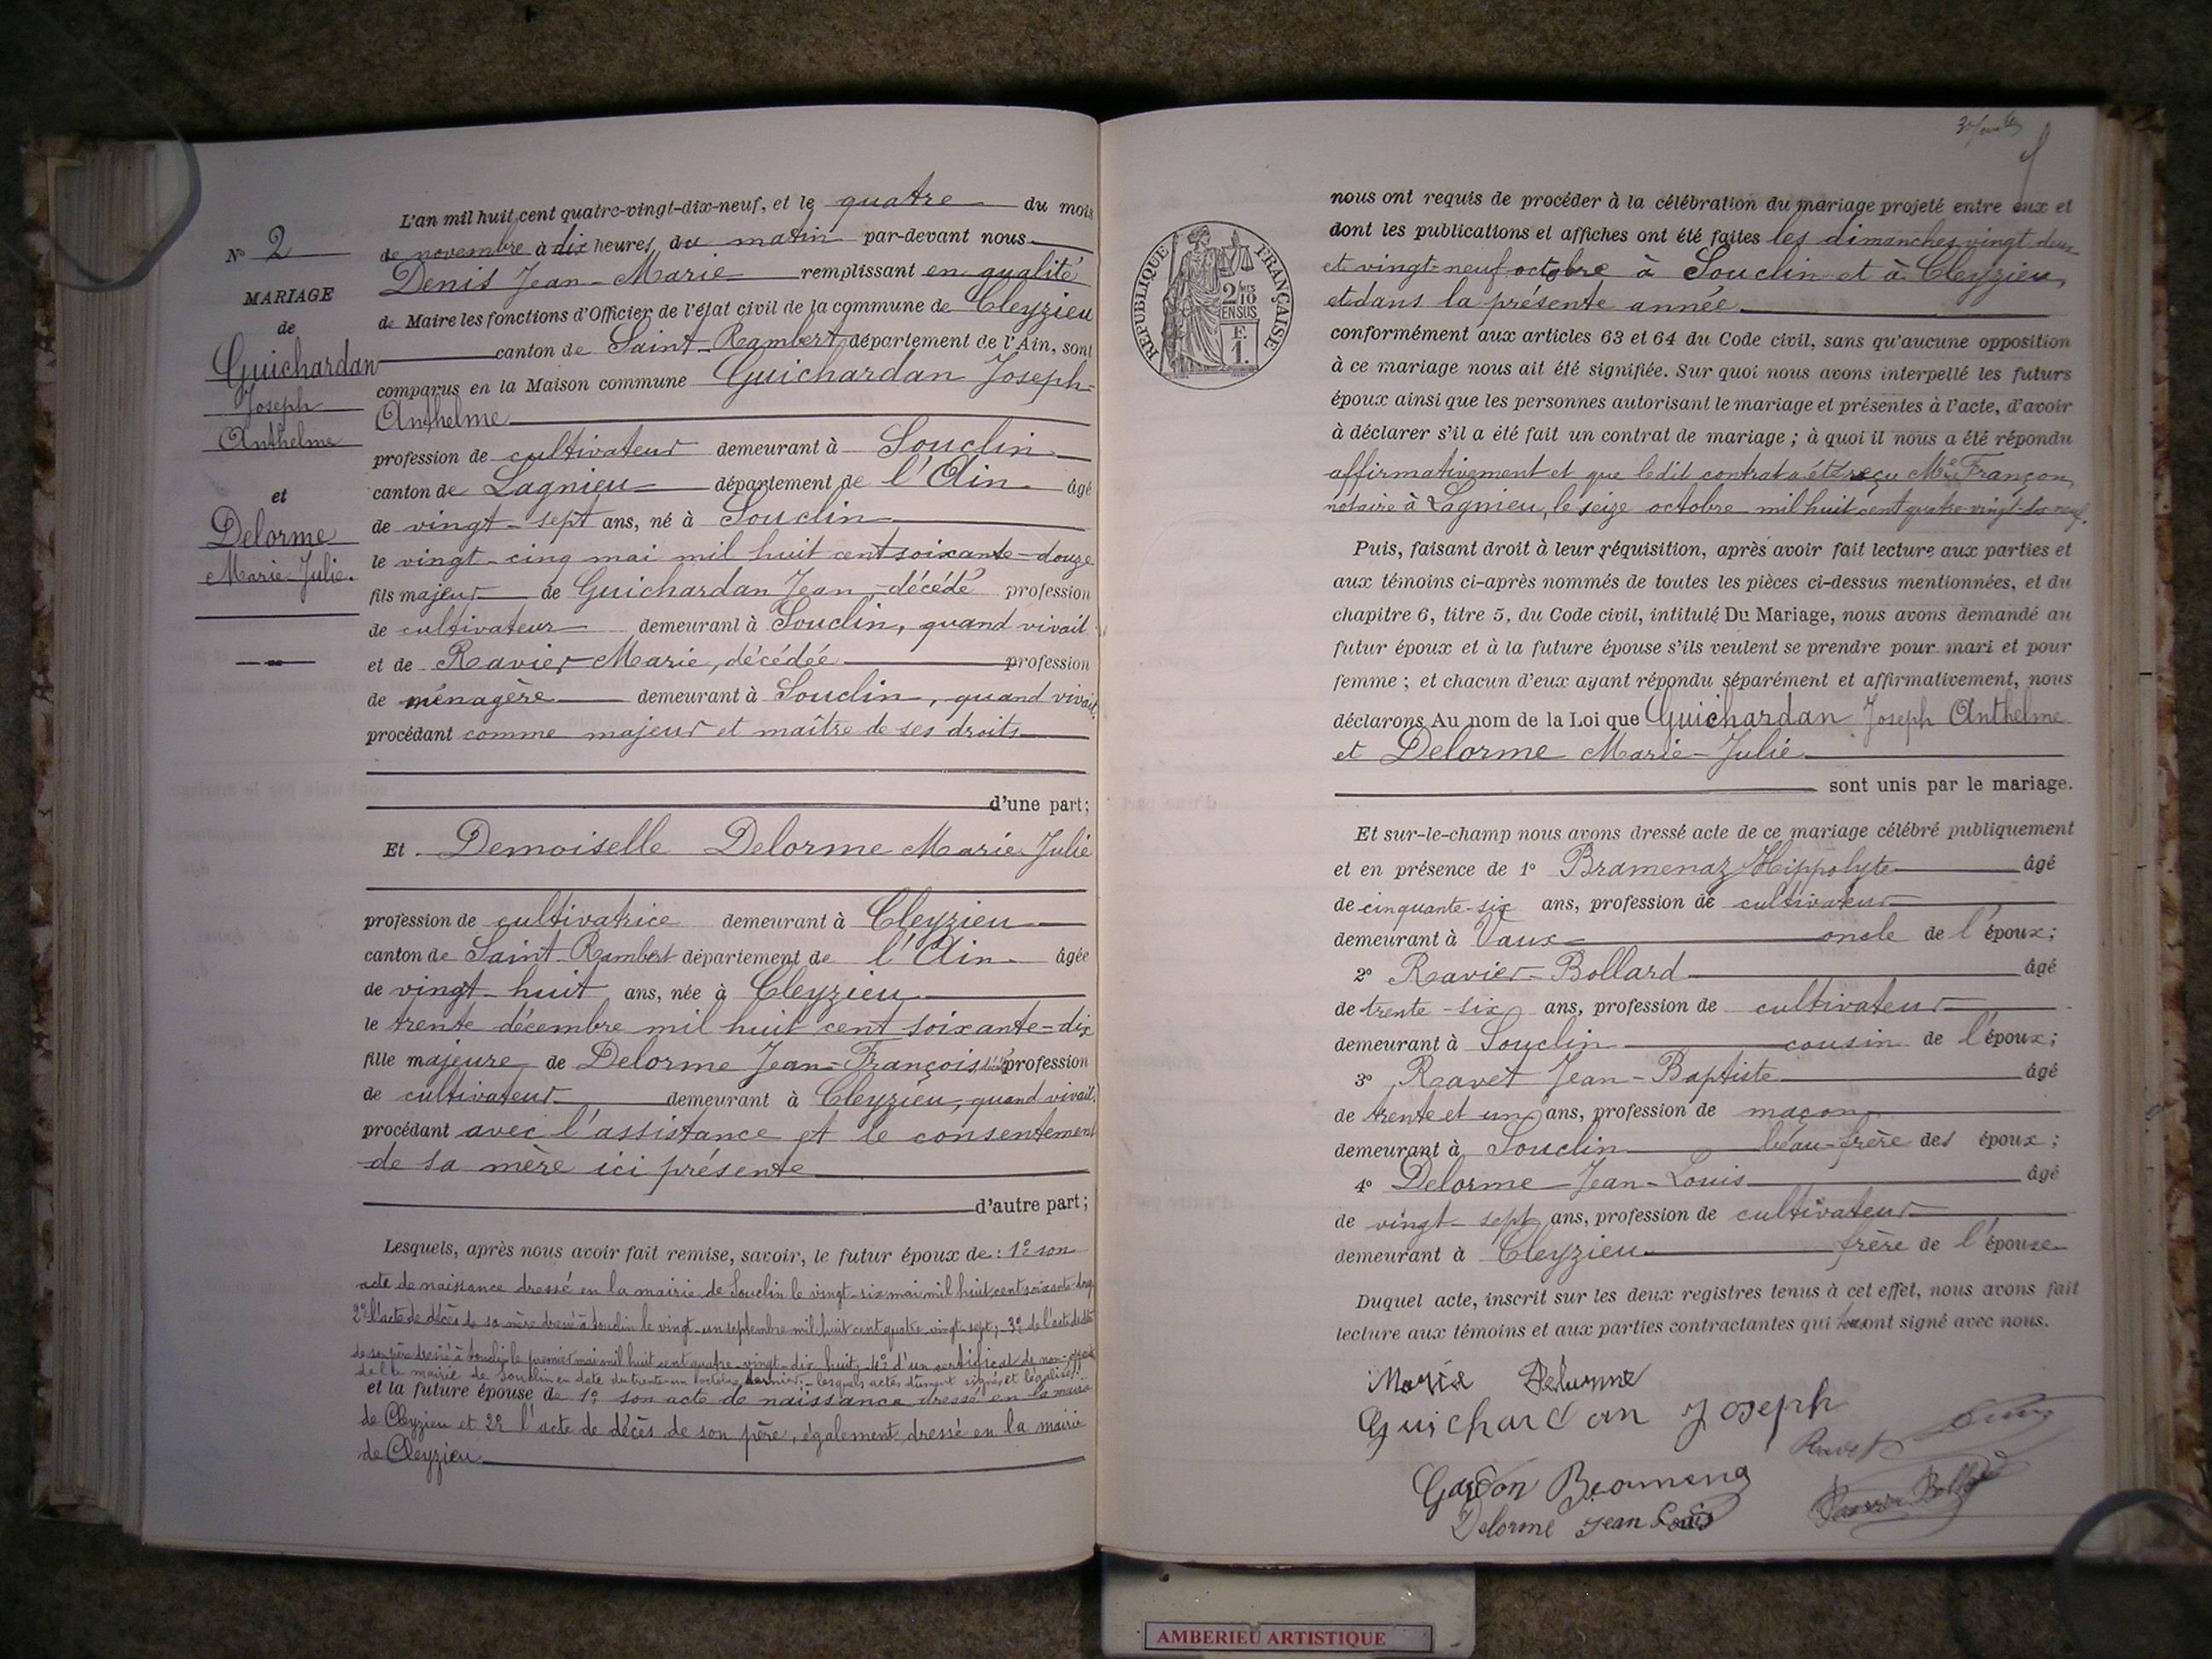 L'an mil huit cent quatre-vingt-dix-neuf, et le quatre du mois
de novembre à dix heures, du matin par-devant nous
Denis Jean-Marie remplissant en qualité
de Maire les fonctions d'Officier de l'état civil de la commune de Cleyzieu
canton de Saint-Rambert département de l'Ain, sont
comparus en la Maison commune Guichardan Joseph-
Anthelme
profession de cultivateur demeurant à Souclin
canton de Lagnieu département de l'Ain âgé
de vingt-sept ans, né à Souclin
le vingt-cinq mai mil huit cent soixante-douze
fils majeur de Guichardan Jean, décédé profession
de cultivateur demeurant à Souclin, quand vivait
et de Ravier Marie, décédée profession
de ménagère demeurant à Souclin, quand vivait,
procédant comme majeur et maître de ses droits
d'une part;
Et Demoiselle Delorme Marie-Julie
profession de cultivatrice demeurant à Cleyzieu
canton de Saint-Rambert département de l'Ain âgée
de vingt-huit ans, née à Cleyzieu
le trente décembre mil huit cent soixante-dix
fille majeure de Delorme Jean-François profession
de cultivateur demeurant à Cleyzieu, quand vivait,
procédant avec l'assistance et le consentement
de sa mère ici présente
d'autre part;
Lesquels, après nous avoir fait remise, savoir, le futur époux de: 1° son
acte de naissance dressé en la mairie de Souclin le vingt-six mai mil huit cent soixante-douze
2° l'acte de décès de sa mère dressé à Souclin le vingt-un septembre mil huit cent quatre-vingt-sept; 3° de l'acte de décès
de son père dressé à Souclin le premier mai mil huit cent quatre-vingt-dix-huit; 4° d'un certificat de non-
de la mairie de Souclin en date du trente-un octobre dernier; lesquels actes dûment signés et légalisés;
et la future épouse de 1° son acte de naissance dressé en la mairie
de Cleyzieu et 2° l'acte de décès de son père, également dressé en la mairie
de Cleyzieu
N° 2
MARIAGE
de
Guichardan
Joseph
Anthelme
et
Delorme
Marie-Julie.
RÉPUBLIQUE FRANÇAISE
2/10
EN SUS
F.
1.
nous ont requis de procéder à la célébration du mariage projeté entre eux et
dont les publications et affiches ont été faites les dimanches vingt-deux
et vingt-neuf octobre à Souclin et à Cleyzieu,
et dans la présente année
conformément aux articles 63 et 64 du Code civil, sans qu'aucune opposition
à ce mariage nous ait été signifiée. Sur quoi nous avons interpellé les futurs
époux ainsi que les personnes autorisant le mariage et présentes à l'acte, d'avoir
à déclarer s'il a été fait un contrat de mariage; à quoi il nous a été répondu
affirmativement et que ledit contrat a été reçu Me Françon,
notaire à Lagnieu, le seize octobre mil huit cent quatre-vingt-dix-neuf.
Puis, faisant droit à leur réquisition, après avoir fait lecture aux parties et
aux témoins ci-après nommés de toutes les pièces ci-dessus mentionnées, et du
chapitre 6, titre 5, du Code civil, intitulé Du Mariage, nous avons demandé au
futur époux et à la future épouse s'ils veulent se prendre pour mari et pour
femme; et chacun d'eux ayant répondu séparément et affirmativement, nous
déclarons Au nom de la Loi que Guichardan Joseph Anthelme
et Delorme Marie-Julie
sont unis par le mariage.
Et sur-le-champ nous avons dressé acte de ce mariage célébré publiquement
et en présence de 1° Bramenaz Hippolyte âgé
de cinquante-six ans, profession de cultivateur
demeurant à Vaux oncle de l'époux;
2° Ravier-Bollard âgé
de trente-six ans, profession de cultivateur
demeurant à Souclin cousin de l'époux;
3° Ravet Jean-Baptiste âgé
de trente et un ans, profession de maçon
demeurant à Souclin beau-frère des époux;
4° Delorme Jean-Louis âgé
de vingt-sept ans, profession de cultivateur
demeurant à Cleyzieu frère de l'épouse
Duquel acte, inscrit sur les deux registres tenus à cet effet, nous avons fait
lecture aux témoins et aux parties contractantes qui tous ont signé avec nous.
Marie Delorme
Guichardan Joseph
Ravet
Delorme Jean Louis
AMBERIEU ARTISTIQUE